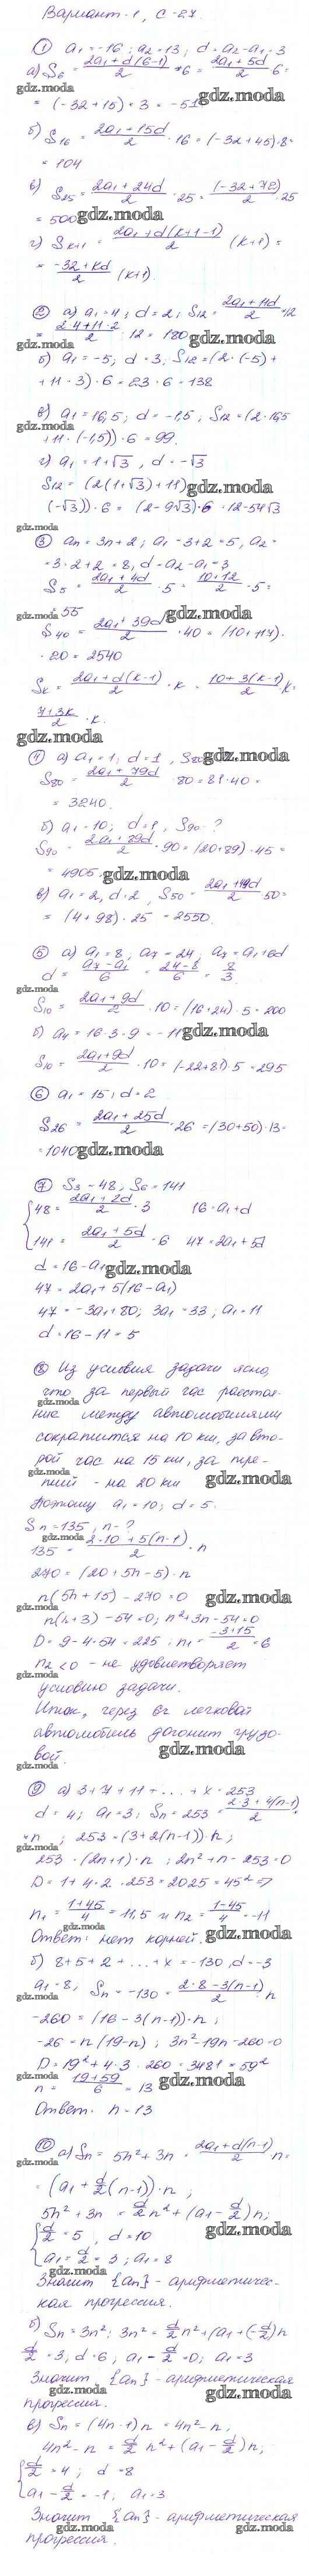 Вариант 1, С-27.
① a₁ = -16; a₂ = 13; d = a₂ - a₁ = 3
а) S₆ = (2a₁ + d(6-1))/2 · 6 = (2a₁ + 5d)/2 · 6 =
gdz.moda
gdz.moda
= (-32 + 15) · 3 = -51
б) S₁₆ = (2a₁ + 15d)/2 · 16 = (-32 + 45) · 8 =
= 104
в) S₂₅ = (2a₁ + 24d)/2 · 25 = (-32 + 72)/2 · 25
= 500
gdz.moda
г) Sₖ₊₁ = (2a₁ + d(k+1-1))/2 (k+1) =
= (-32 + kd)/2 (k+1).
② а) a₁ = 4; d = 2; S₁₂ = (2a₁ + 11d)/2 · 12
= (2·4 + 11·2)/2 · 12 = 180
gdz.moda
gdz.moda
б) a₁ = -5; d = 3; S₁₂ = (2·(-5) +
+ 11·3) · 6 = 23 · 6 = 138
в) a₁ = 16,5; d = -1,5; S₁₂ = (2·16,5
gdz.moda
+ 11·(-1,5)) · 6 = 99.
г) a₁ = 1 + √3, d = -√3
S₁₂ = (2(1 + √3) + 11 ·
gdz.moda
(-√3)) · 6 = (2 - 9√3) · 6 = 12 - 54√3
gdz.moda
③ aₙ = 3n + 2; a₁ = 3 + 2 = 5, a₂ =
= 3·2 + 2 = 8, d = a₂ - a₁ = 3
S₅ = (2a₁ + 4d)/2 · 5 = (10 + 12)/2 · 5 =
= 55
gdz.moda
gdz.moda
S₄₀ = (2a₁ + 39d)/2 · 40 = (10 + 117) ·
· 20 = 2540
Sₖ = (2a₁ + d(k-1))/2 · k = (10 + 3(k-1))/2 k =
(7 + 3k)/2 · k.
gdz.moda
④ а) a₁ = 1; d = 1, S₈₀
gdz.moda
S₈₀ = (2a₁ + 79d)/2 · 80 = 81 · 40 =
= 3240.
б) a₁ = 10; d = 1, S₉₀ - ?
S₉₀ = (2a₁ + 89d)/2 · 90 = (20 + 89) · 45 =
= 4905.
gdz.moda
в) a₁ = 2, d = 2, S₅₀ = (2a₁ + 49d)/2 · 50 =
= (4 + 98) · 25 = 2550.
⑤ а) a₁ = 8, a₇ = 24, a₇ = a₁ + 6d
d = (a₇ - a₁)/6 = (24 - 8)/6 = 8/3.
gdz.moda
S₁₀ = (2a₁ + 9d)/2 · 10 = (16 + 24) · 5 = 200
б) a₄ = 16 - 3 · 9 = -11
gdz.moda
S₁₀ = (2a₁ + 9d)/2 · 10 = (-22 + 81) · 5 = 295
⑥ a₁ = 15; d = 2
S₂₆ = (2a₁ + 25d)/2 · 26 = (30 + 50) · 13 =
= 1040
gdz.moda
⑦ S₃ = 48; S₆ = 141
{ 48 = (2a₁ + 2d)/2 · 3   16 = a₁ + d
141 = (2a₁ + 5d)/2 · 6   47 = 2a₁ + 5d
d = 16 - a₁
gdz.moda
47 = 2a₁ + 5(16 - a₁)
47 = -3a₁ + 80; 3a₁ = 33; a₁ = 11
d = 16 - 11 = 5
⑧ Из условия задачи ясно,
что за первый час расстоя-
gdz.moda
ние между автомобилями
сократится на 10 км, за вто-
рой час на 15 км, за тре-
gdz.moda
тий - на 20 км
gdz.moda
Поэтому a₁ = 10; d = 5.
Sₙ = 135, n - ?
gdz.moda
135 = (2·10 + 5(n-1))/2 · n
270 = (20 + 5n - 5) · n
n(5n + 15) - 270 = 0
gdz.moda
gdz.moda
n(n+3) - 54 = 0; n² + 3n - 54 = 0
D = 9 - 4·54 = 225; n₁ = (-3 + 15)/2 = 6
gdz.moda
n₂ < 0 - не удовлетворяет
условию задачи.
Итак, через 6ч легковой
автомобиль догонит грузо-
вой.
gdz.moda
gdz.moda
⑨ а) 3 + 7 + 11 + ... + x = 253
d = 4; a₁ = 3; Sₙ = 253 = (2·3 + 4(n-1))/2 ·
· n; 253 = (3 + 2(n-1)) · n;
gdz.moda
253 = (2n+1) · n; 2n² + n - 253 = 0
D = 1 + 4·2·253 = 2025 = 45² ⇒
n₁ = (-1 + 45)/4 = 11,5 и n₂ = (1 - 45)/4 = -11
gdz.moda
Ответ: нет корней.
gdz.moda
б) 8 + 5 + 2 + ... + x = -130, d = -3
a₁ = 8; Sₙ = -130 = (2·8 - 3(n-1))/2 · n
gdz.moda
-260 = (16 - 3(n-1)) · n;
-26 = n(19 - n); 3n² - 19n - 260 = 0
D = 19² + 4·3·260 = 3481 = 59²
n = (19 + 59)/6 = 13
gdz.moda
gdz.moda
Ответ: n = 13
⑩ а) Sₙ = 5n² + 3n = (2a₁ + d(n-1))/2 n =
gdz.moda
= (a₁ + d/2 (n-1)) · n;
5n² + 3n = d/2 n² + (a₁ - d/2) n;
{ d/2 = 5, d = 10
gdz.moda
a₁ - d/2 = 3; a₁ = 8
gdz.moda
Значит {aₙ} - арифметичес-
кая прогрессия.
б) Sₙ = 3n²; 3n² = d/2 n² + (a₁ + (-d/2) n
gdz.moda
d/2 = 3; d = 6, a₁ - d/2 = 0; a₁ = 3
Значит {aₙ} - арифметическая
gdz.moda
gdz.moda
прогрессия.
в) Sₙ = (4n-1) n = 4n² - n,
4n² - n = d/2 n² + (a₁ - d/2) n;
{ d/2 = 4; d = 8
gdz.moda
a₁ - d/2 = -1, a₁ = 3
gdz.moda
Значит {aₙ} - арифметическая
прогрессия.
gdz.moda